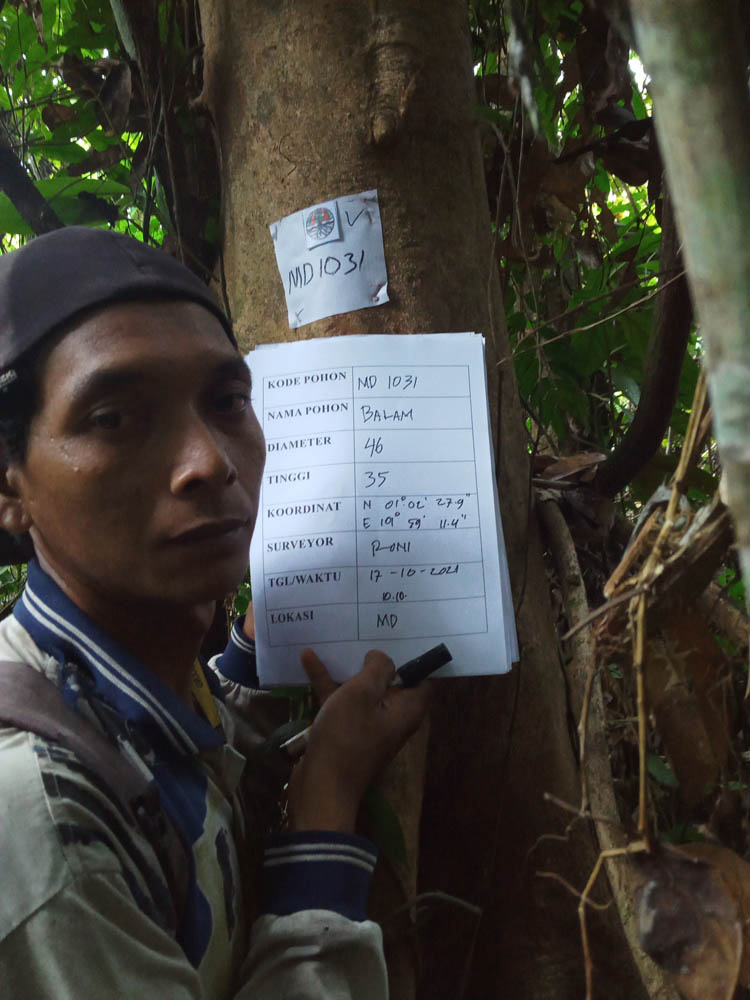 MD 1031
KODE POHON MD 1031
NAMA POHON BALAM
DIAMETER 46
TINGGI 35
KOORDINAT N 01° 02' 27.9"
E 101° 59' 11.4"
SURVEYOR RONI
TGL/WAKTU 17-10-2021
10.10.
LOKASI MD